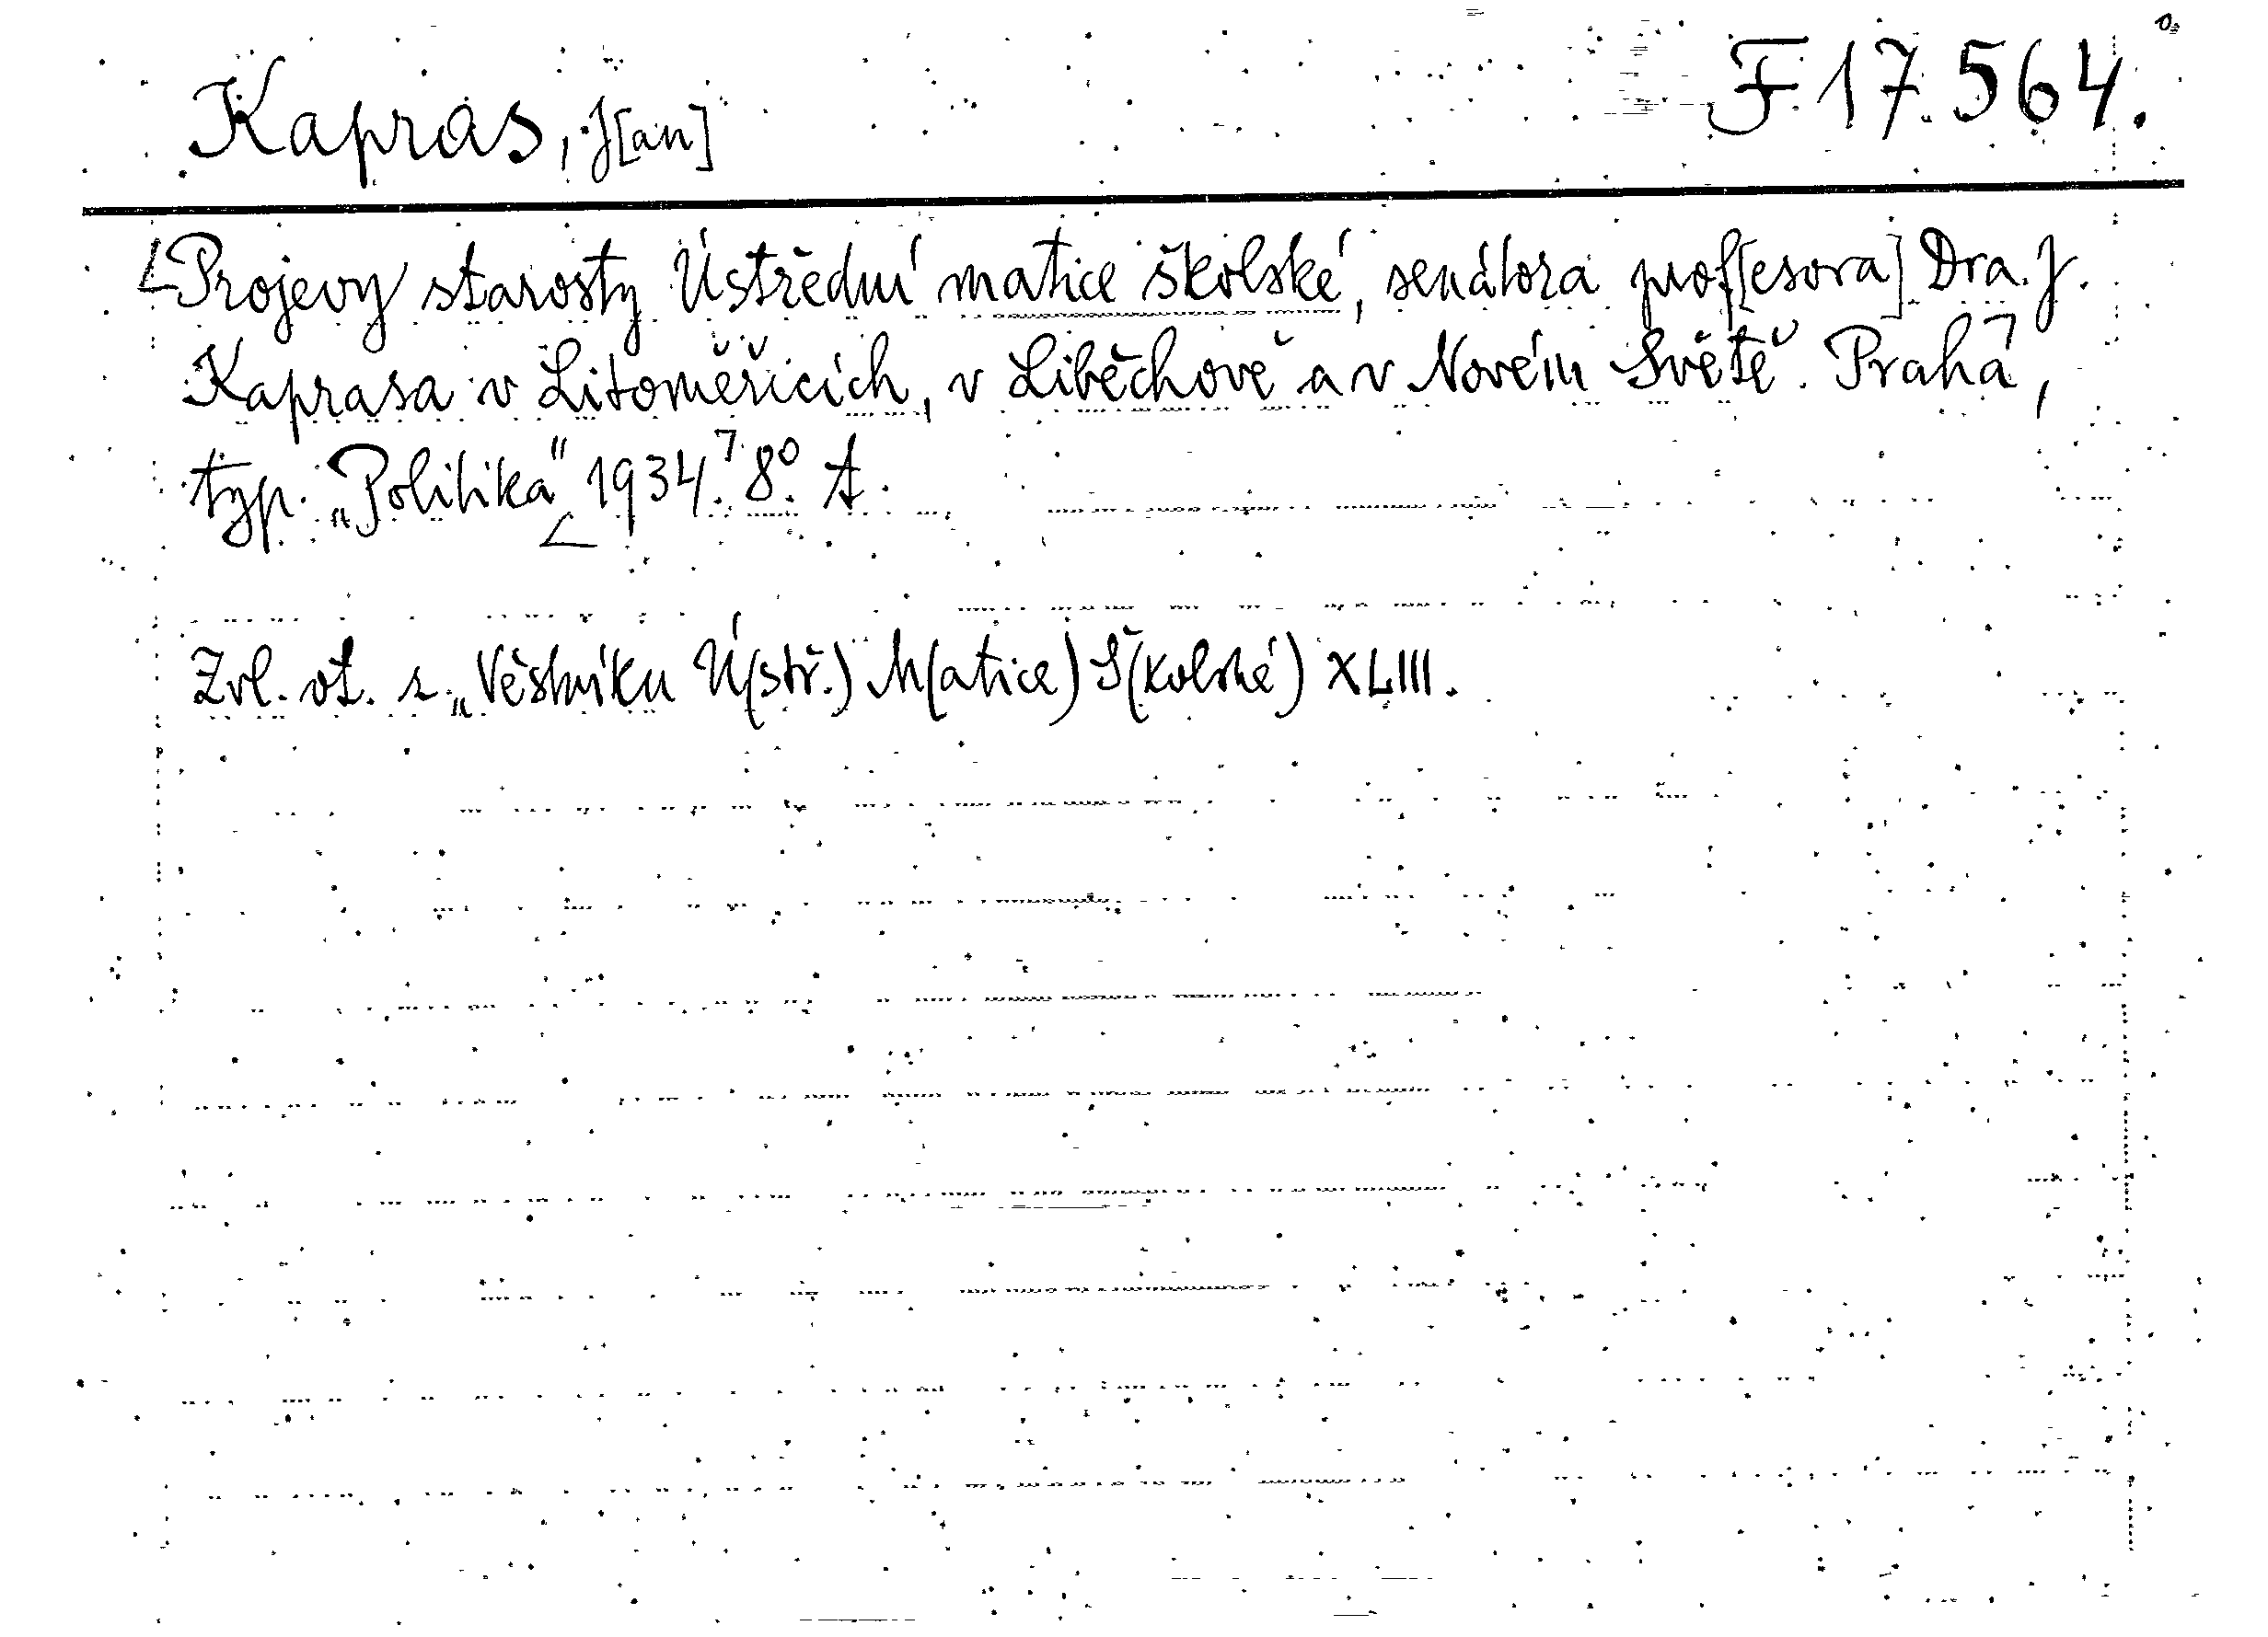 Kapras, J[an] F 17.564.
Projevy starosty Ústřední matice školské, senátora prof[esora] Dra. J.
Kaprasa v Litoměřicích, v Liběchově a v Novém Světě. Praha,
typ. „Politika" 1934. 8°. A.
Zvl. ot. z „Věstníku Ú(stř.) M(atice) Š(kolské) XLIII.